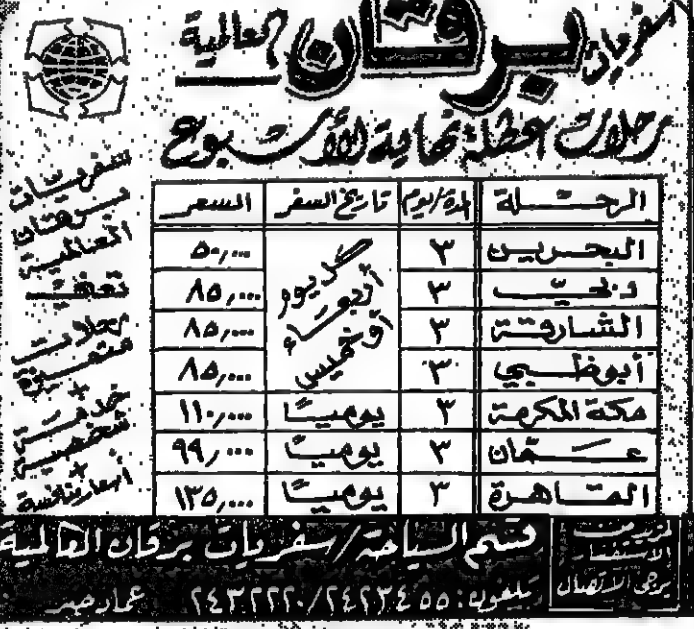 سفريات برقان العالمية
رحلات عطلة نهاية الأسبوع
الرحلة | المدة/يوم | تاريخ السفر | السعر
البحرين | ٣ | كل يوم أربعاء أو خميس | ٥٠,٠٠٠
دبي | ٣ | ٨٥,٠٠٠
الشارقة | ٣ | ٨٥,٠٠٠
أبوظبي | ٣ | ٨٥,٠٠٠
مكة المكرمة | ٣ | يوميًا | ١١٠,٠٠٠
عمّان | ٣ | يوميًا | ٩٩,٠٠٠
القاهرة | ٣ | يوميًا | ١٣٥,٠٠٠
سفريات
برقان
العالمية
تعني
رحلات
متميزة
+
خدمة
شخصية
+
أسعار منافسة
لمزيد من
الاستفسار
يرجى الاتصال
قسم السياحة/سفريات برقان العالمية
تلفون: ٢٤٢٣٤٥٥/٢٤٣٢٢٢٠